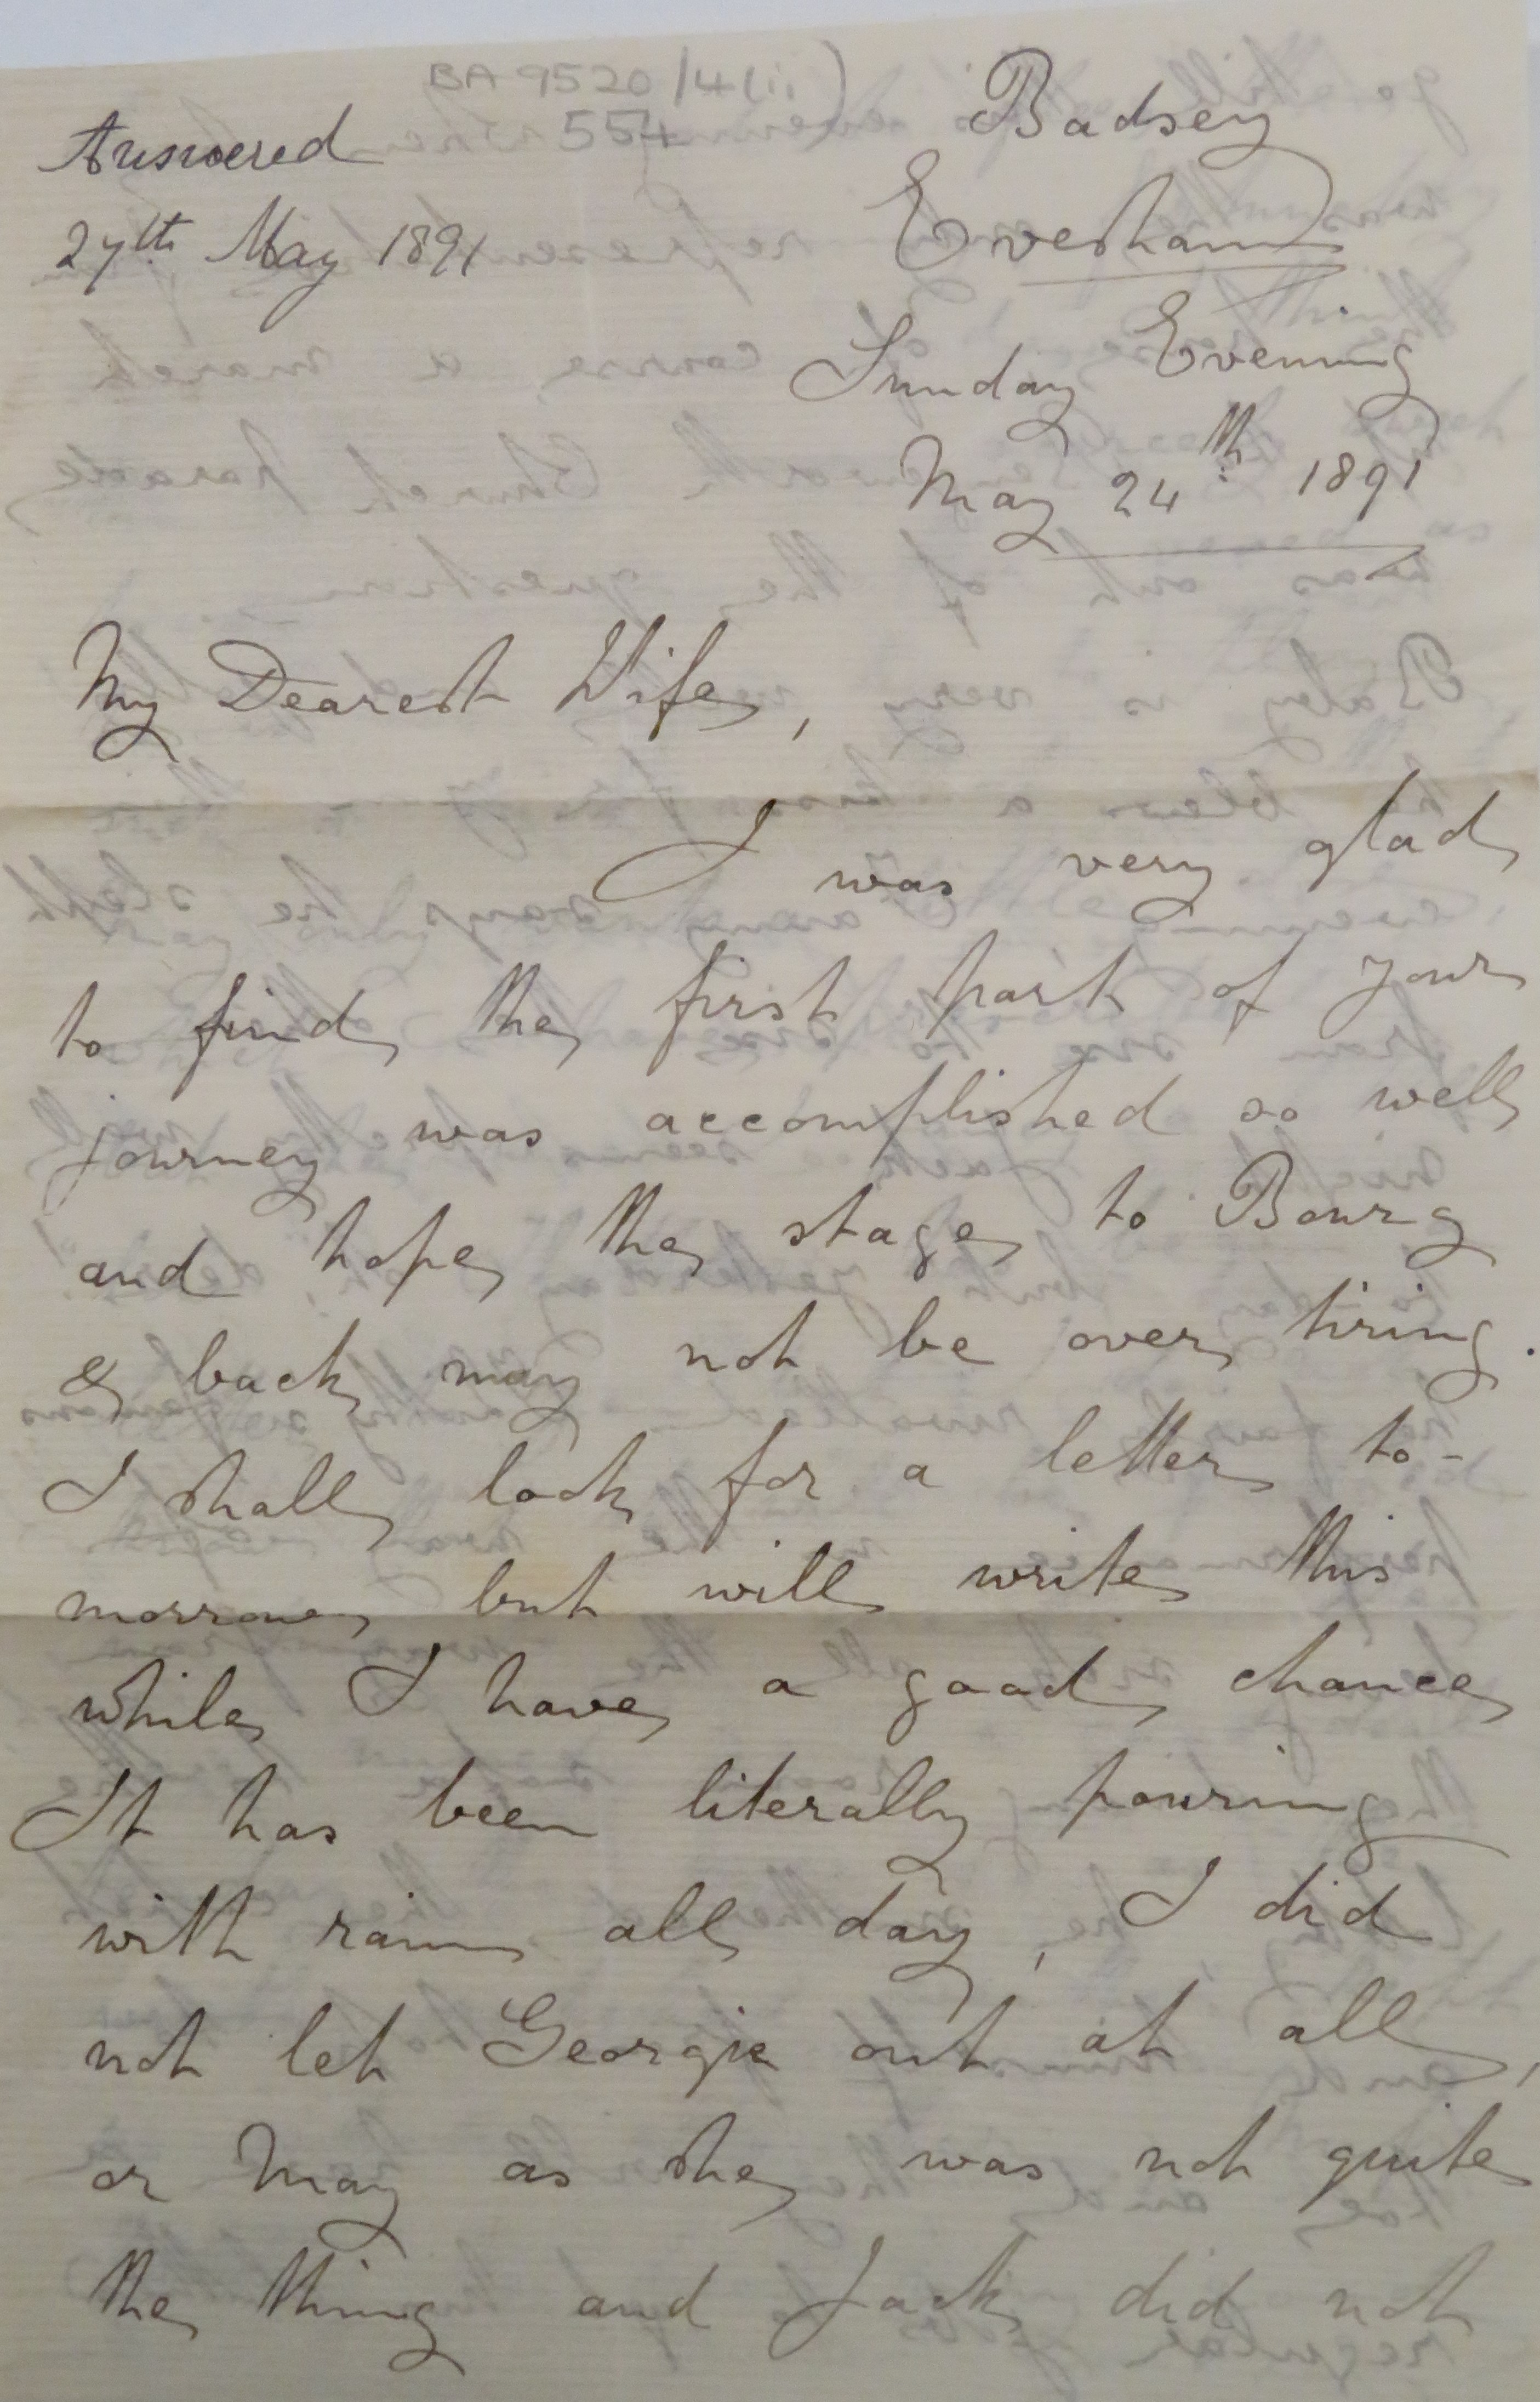 BA 9520/4(ii)
554
Answered
27th May 1891
Badsey
Evesham
Sunday Evening
May 24th 1891
My Dearest Wife,
I was very glad
to find the first part of your
journey was accomplished so well
and hope the stage to Bourg
& back may not be over tiring.
I shall look for a letter to-
morrow but will write this
while I have a good chance
It has been literally pouring
with rain all day, I did
not let Georgie out at all,
or May as she was not quite
the thing and Jack did not